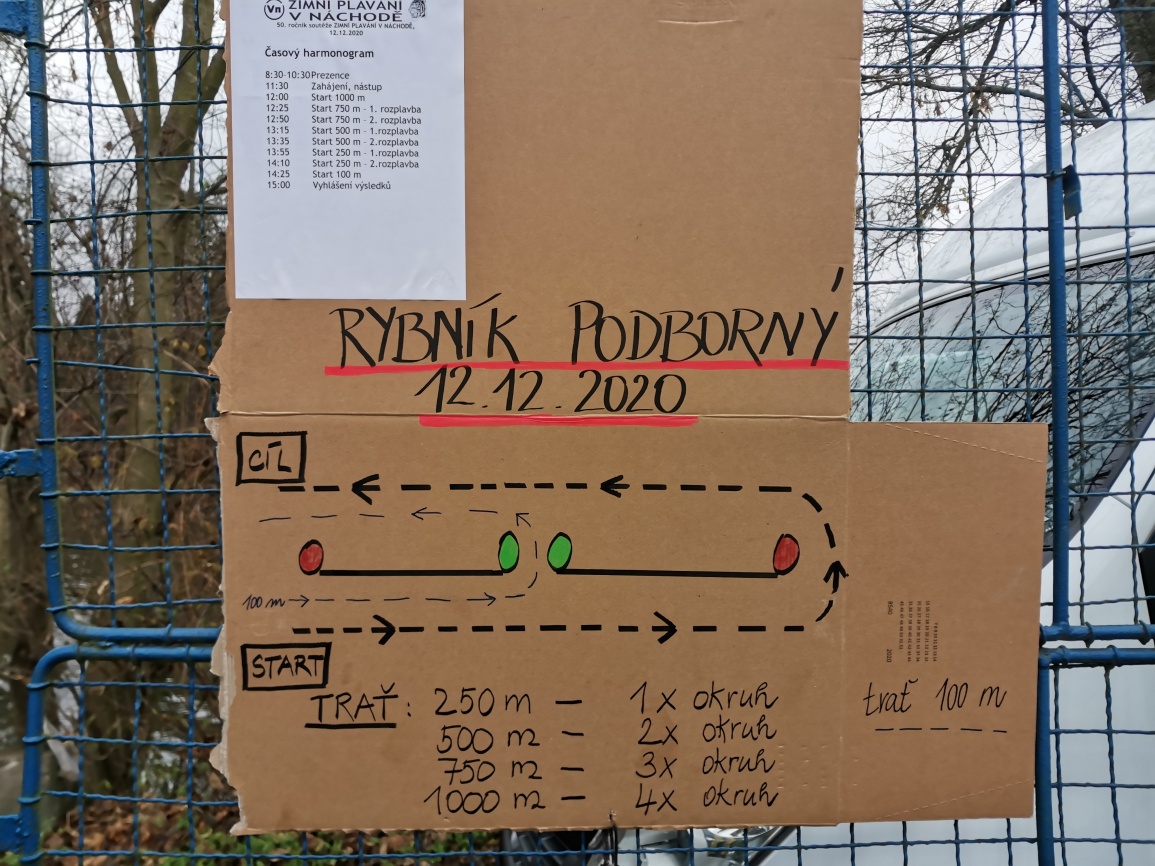 Vn ZIMNÍ PLAVÁNÍ
V NÁCHODĚ
50. ročník soutěže ZIMNÍ PLAVÁNÍ V NÁCHODĚ,
12.12.2020
Časový harmonogram
8:30-10:30 Prezence
11:30 Zahájení, nástup
12:00 Start 1000 m
12:25 Start 750 m - 1. rozplavba
12:50 Start 750 m - 2. rozplavba
13:15 Start 500 m - 1.rozplavba
13:35 Start 500 m - 2.rozplavba
13:55 Start 250 m - 1.rozplavba
14:10 Start 250 m - 2.rozplavba
14:25 Start 100 m
15:00 Vyhlášení výsledků
RYBNÍK PODBORNÝ
12.12.2020
CÍL
100 m
START
TRAŤ: 250 m – 1x okruh
500 m – 2x okruh
750 m – 3x okruh
1000 m – 4x okruh
trať 100 m